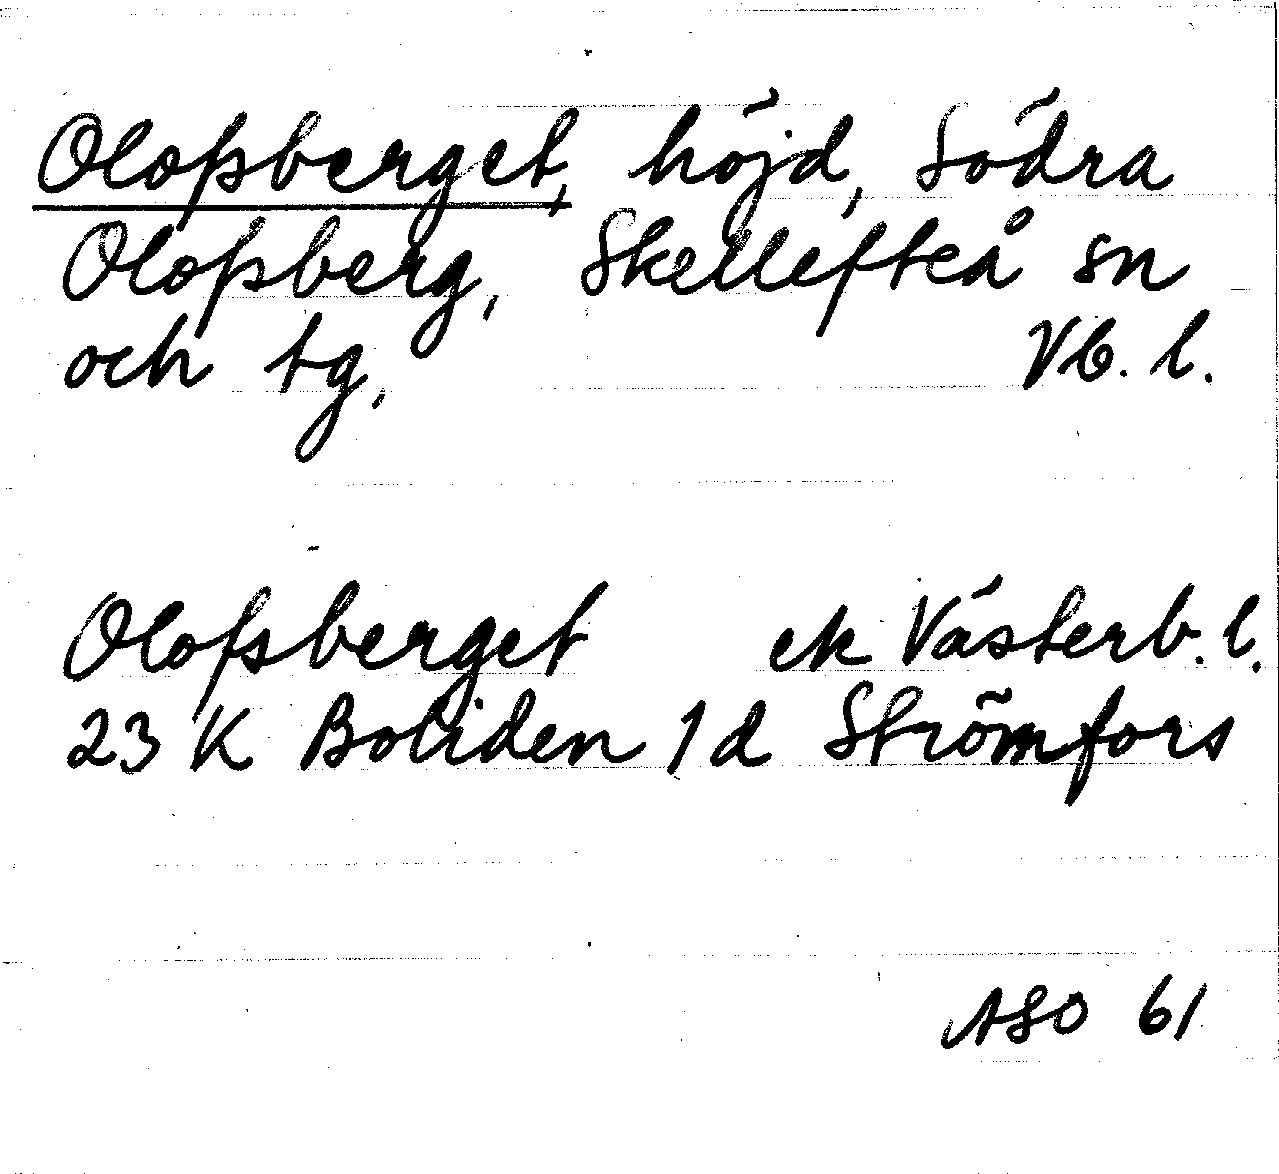 Olofsberget, höjd, Södra
Olofsberg, Skellefteå sn
och tg, Vb. l.
Olofsberget ek Västerb. l.
23 K Boliden 1 d Strömfors
ASO 61